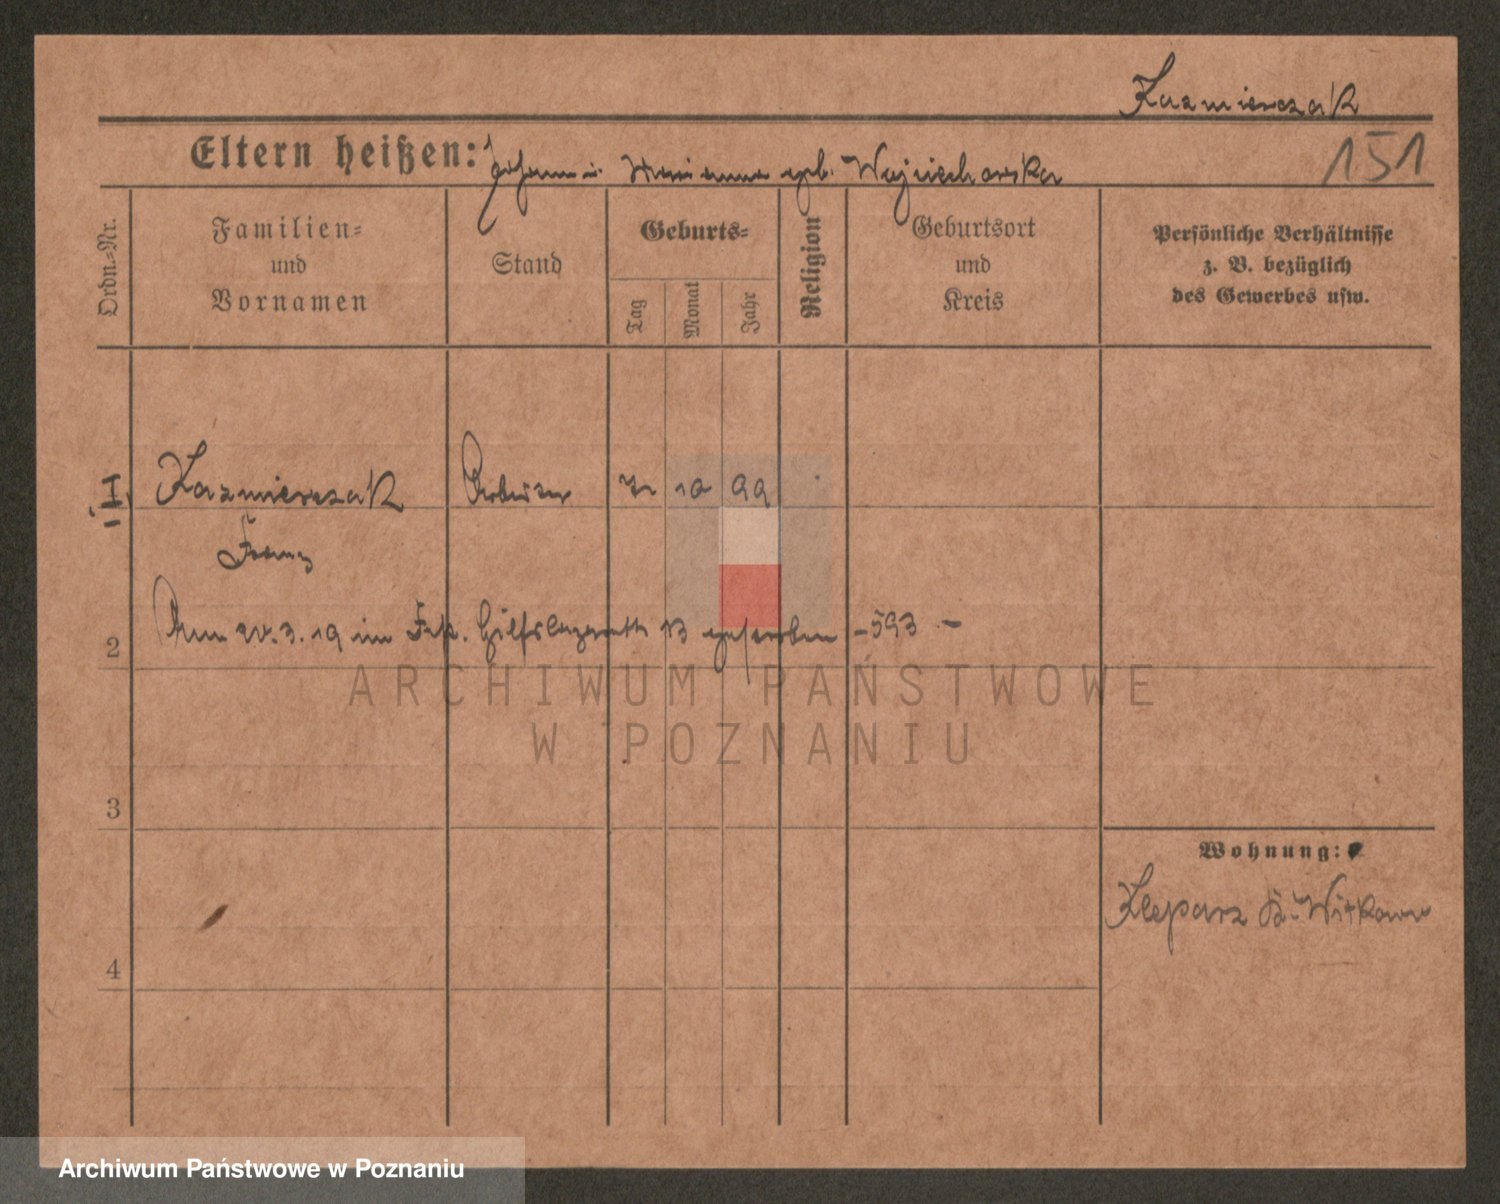 Kazmierczak
Eltern heißen: Johann u. Marianna geb. Wojciechowska
151
Ordn.-Nr.
Familien-
und
Vornamen
Stand
Geburts-
Tag
Monat
Jahr
Religion
Geburtsort
und
Kreis
Persönliche Verhältnisse
z. B. bezüglich
des Gewerbes usw.
I. Kazmierczak Arbeiter 10 99
Franz
2 3. 19 im Fest. Hilfslazarett 13 gestorben - 593 -
ARCHIWUM PAŃSTWOWE
W POZNANIU
3
Wohnung:
Kleparz Kr. Witkowo
4
Archiwum Państwowe w Poznaniu